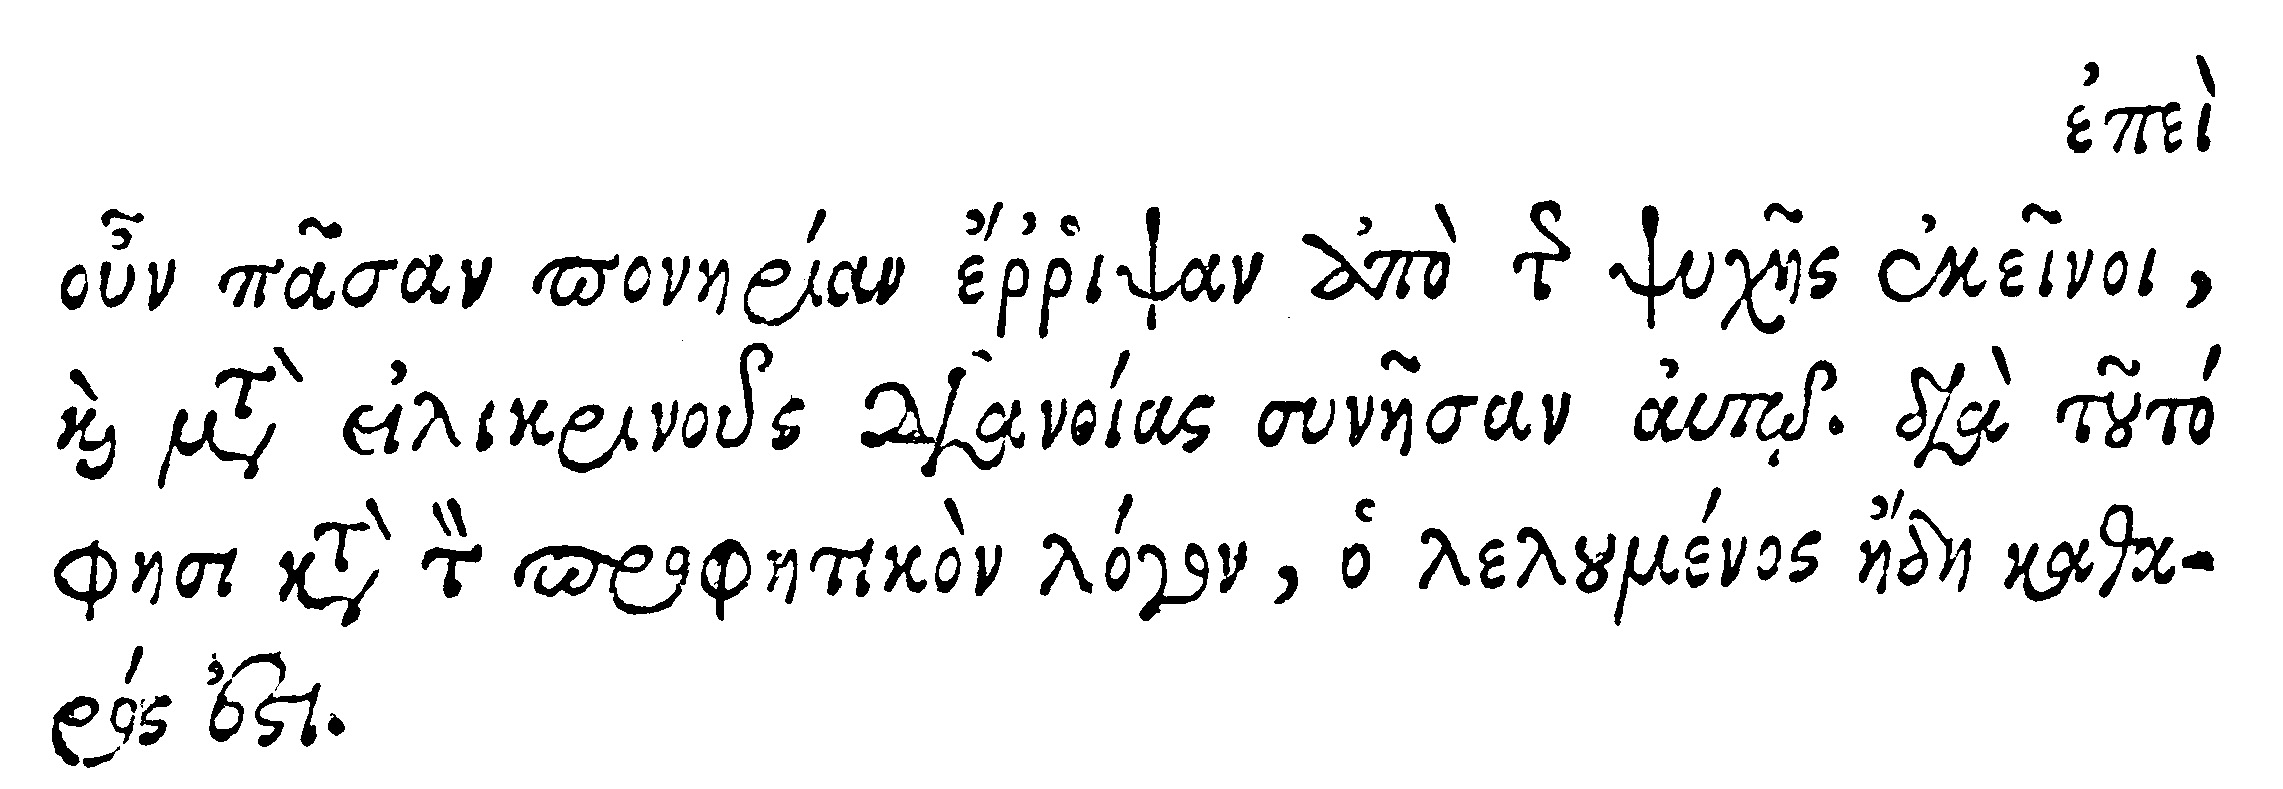 ἐπεὶ
οὖν πᾶσαν πονηρίαν ἔῤῥιψαν ἀπὸ τῆς ψυχῆς ἐκεῖνοι,
καὶ μετὰ εἰλικρινοῦς διανοίας συνῆσαν αὐτῷ. διὰ τοῦτό
φησι κατὰ τὸν προφητικὸν λόγον, ὁ λελουμένος ἤδη καθα-
ρός ἐστι.